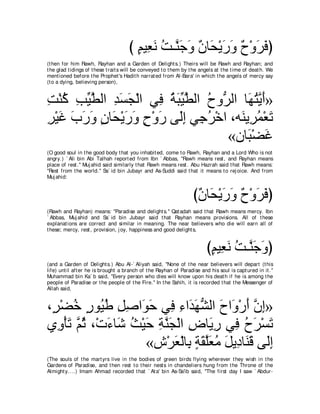 ( فَرَوْحٌ وَرَيْحَانٌ وَجَـنَّـتُ نَعِيمٍ )
(then for him Rawh, Rayhan and a Garden of Delights.) Theirs will be Rawh and Rayhan; and
the glad tidings of these traits will be conveyed to them by the angels at the time of death. We
mentioned before the Prophet's Hadith narrated from Al-Bara' in which the angels of mercy say
(to a dying, believing person),
«أَيَّتُهَا الرُّوحُ الطَّيِّبَةُ فِي الْجَسَدِ الطَّيِّبِ كُنْتِ
تَعْمُرِينَهُ، اخْرُجِي إِلَى رَوْحٍ وَرَيْحَانٍ وَرَبَ غَيْرِ
غَضْبَانَ»
(O good soul in the good body that you inhabited, come to Rawh, Rayhan and a Lord Who is not
angry.) `Ali bin Abi Talhah reported from Ibn `Abbas, "Rawh means rest, and Rayhan means
place of rest." Mujahid said similarly that Rawh means rest. Abu Hazrah said that Rawh means:
"Rest from the world." Sa`id bin Jubayr and As-Suddi said that it means to rejoice. And from
Mujahid:
(فَرَوْحٌ وَرَيْحَانٌ)
(Rawh and Rayhan) means: "Paradise and delights." Qatadah said that Rawh means mercy. Ibn
`Abbas, Mujahid and Sa`id bin Jubayr said that Rayhan means provisions. All of these
explanations are correct and similar in meaning. The near believers who die will earn all of
these; mercy, rest, provision, joy, happiness and good delights,
(وَجَنَّـتُ نَعِيمٍ)
(and a Garden of Delights.) Abu Al-`Aliyah said, "None of the near believers will depart (this
life) until after he is brought a branch of the Rayhan of Paradise and his soul is captured in it."
Muhammad bin Ka`b said, "Every person who dies will know upon his death if he is among the
people of Paradise or the people of the Fire." In the Sahih, it is recorded that the Messenger of
Allah said,
«إِنَّ أَرْوَاحَ الشُّهَدَاءِ فِي حَوَاصِلِ طُيُورٍ خُضْرٍ،
تَسْرَحُ فِي رِيَاضِ الْجَنَّةِ حَيْثُ شَاءَتْ، ثُمَّ تَأْوِي
إِلَى قَنَادِيلَ مُعَلَّقَةٍ بِالْعَرْش»
(The souls of the martyrs live in the bodies of green birds flying wherever they wish in the
Gardens of Paradise, and then rest to their nests in chandeliers hung from the Throne of the
Almighty....) Imam Ahmad recorded that `Ata' bin As-Sa'ib said, "The first day I saw `Abdur-